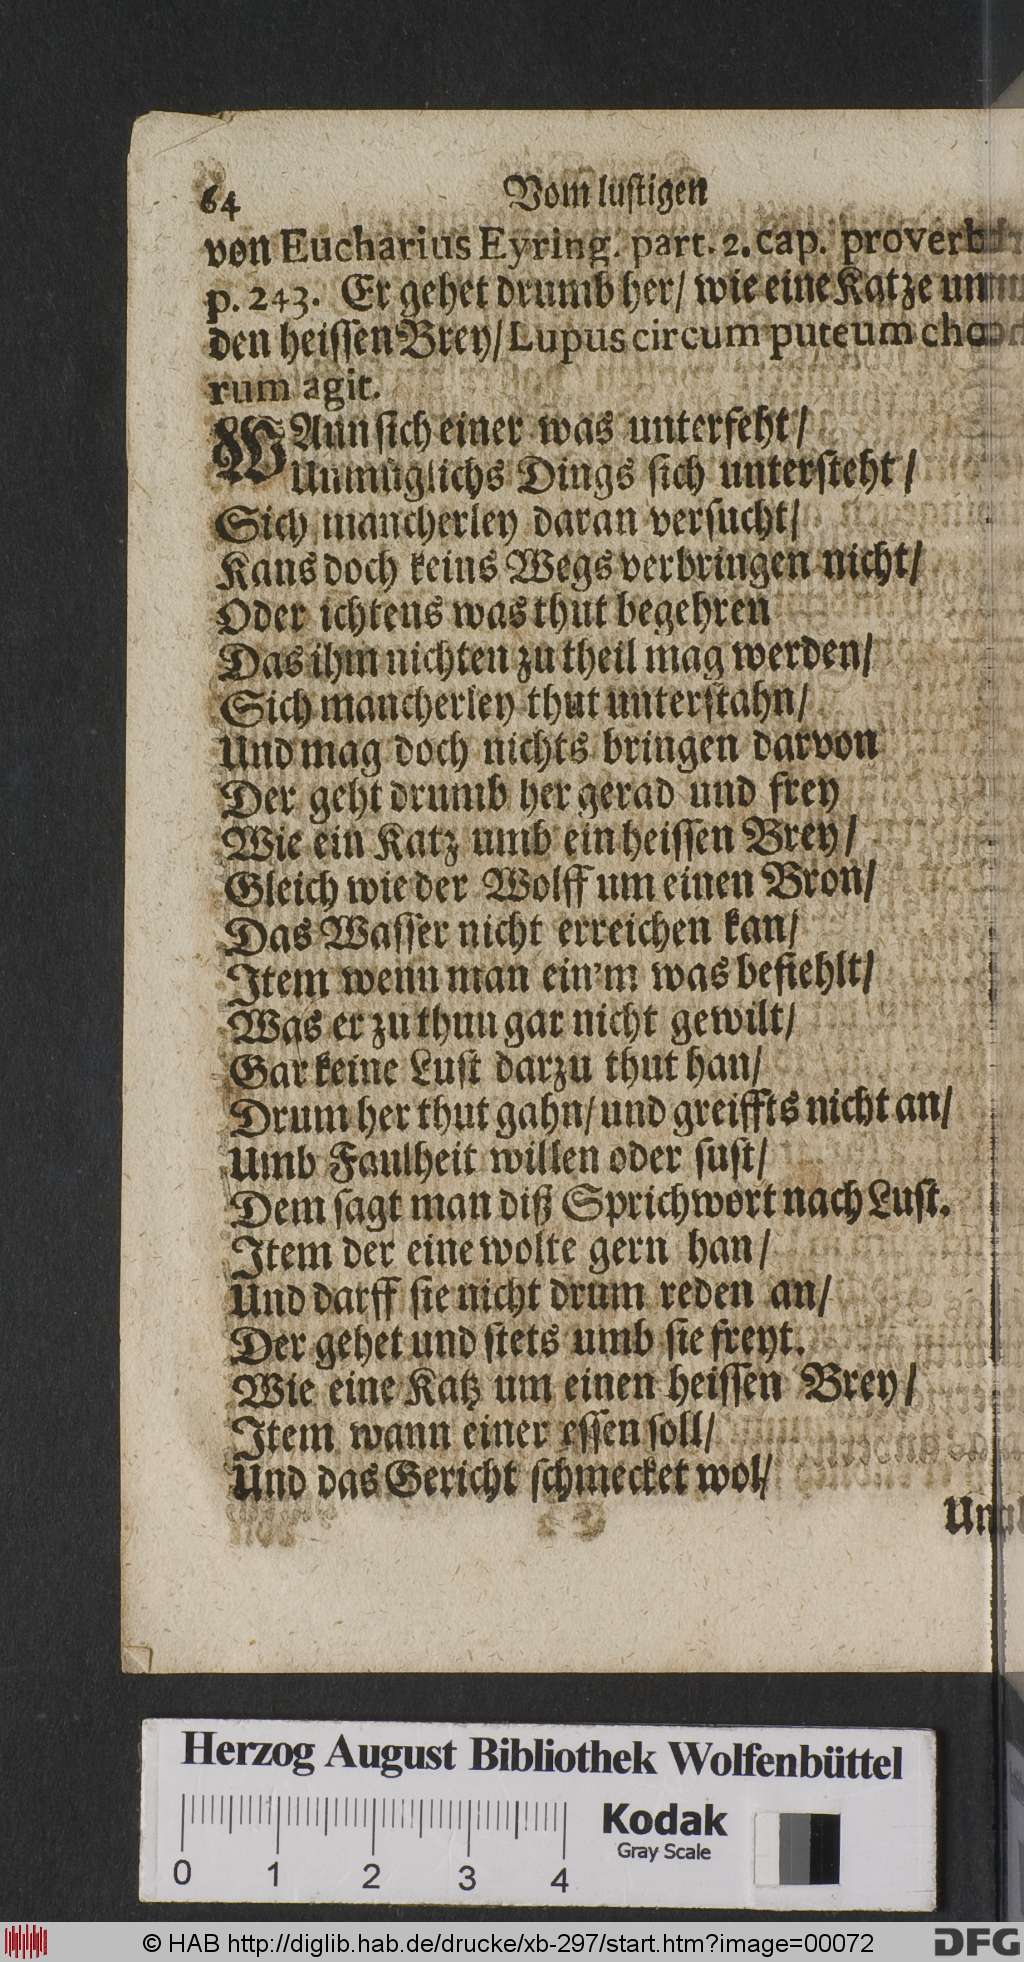 64 Vom lustigen
von Eucharius Eyring. part. 2. cap. proverb.
p. 243. Er gehet drumb her/ wie eine Katze um
den heissen Brey/ Lupus circum puteum cho-
rum agit.
WAnn sich einer was unterfeht/
Unmüglichs Dings sich untersteht/
Sich mancherley daran versucht/
Kans doch keins Wegs verbringen nicht/
Oder ichtens was thut begehren
Das ihm nichten zu theil mag werden/
Sich mancherley thut unterstahn/
Und mag doch nichts bringen darvon
Der geht drumb her gerad und frey
Wie ein Katz umb ein heissen Brey/
Gleich wie der Wolff um einen Bron/
Das Wasser nicht erreichen kan/
Item wenn man ein'm was befiehlt/
Was er zu thun gar nicht gewilt/
Gar keine Lust darzu thut han/
Drum her thut gahn/ und greiffts nicht an/
Umb Faulheit willen oder sust/
Dem sagt man diß Sprichwort nach Lust.
Item der eine wolte gern han/
Und darff sie nicht drum reden an/
Der gehet und stets umb sie freyt.
Wie eine Katz um einen heissen Brey/
Item wann einer essen soll/
Und das Gericht schmecket wol/
Herzog August Bibliothek Wolfenbüttel
Kodak
Gray Scale
0 1 2 3 4
© HAB http://diglib.hab.de/drucke/xb-297/start.htm?image=00072
DFG